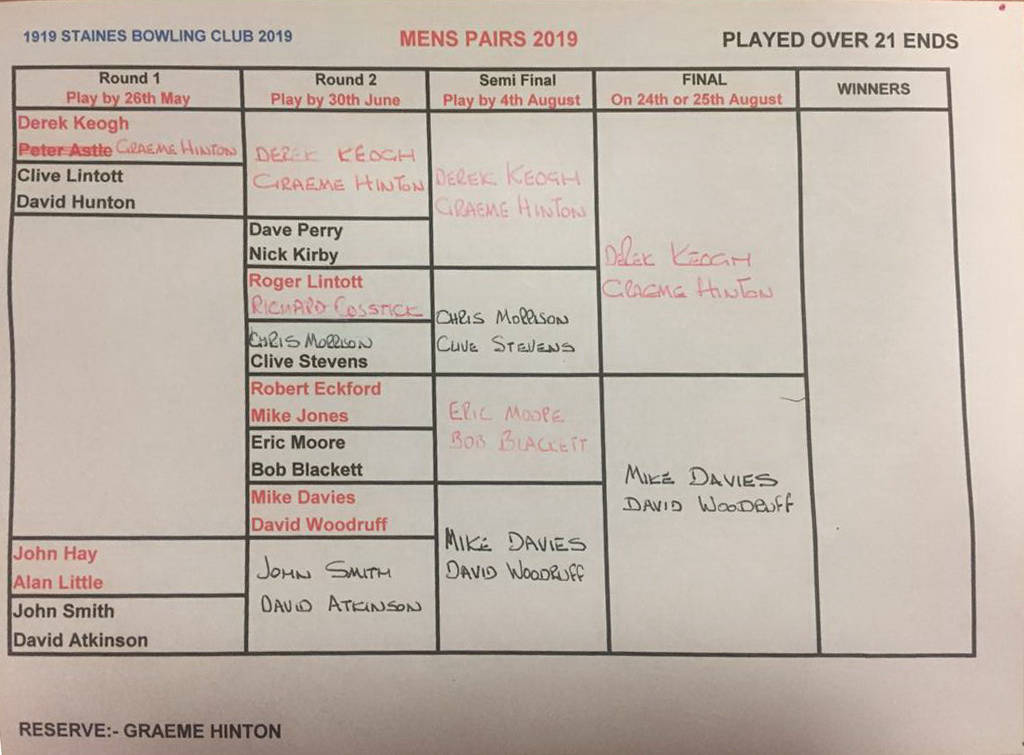 1919 STAINES BOWLING CLUB 2019
MENS PAIRS 2019
PLAYED OVER 21 ENDS
Round 1
Play by 26th May
Round 2
Play by 30th June
Semi Final
Play by 4th August
FINAL
On 24th or 25th August
WINNERS
Derek Keogh
Peter Astle GRAEME HINTON
Clive Lintott
David Hunton
John Hay
Alan Little
John Smith
David Atkinson
DEREK KEOGH
GRAEME HINTON
Dave Perry
Nick Kirby
Roger Lintott
RICHARD COSSTICK
CHRIS MORRISON
Clive Stevens
Robert Eckford
Mike Jones
Eric Moore
Bob Blackett
Mike Davies
David Woodruff
JOHN SMITH
DAVID ATKINSON
DEREK KEOGH
GRAEME HINTON
CHRIS MORRISON
CLIVE STEVENS
ERIC MOORE
BOB BLACKETT
MIKE DAVIES
DAVID WOODRUFF
DEREK KEOGH
GRAEME HINTON
MIKE DAVIES
DAVID WOODRUFF
RESERVE:- GRAEME HINTON